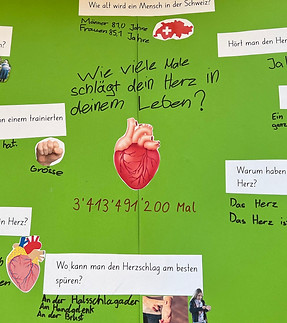 Wie alt wird ein Mensch in der Schweiz?
Männer 81,0 Jahre
Frauen 85,1 Jahre
n?
Hört man den Her
Ja
Wie viele Male
schlägt dein Herz in
deinem Leben?
n einem trainierten
hat.
Grösse
Ein
ganz
3'413'491'200 Mal
Warum haben
Das Herz
Das Herz is
n Herz?
en
Wo kann man den Herzschlag am besten
spüren?
An der Halsschlagader
Am Handgelenk
An der Brust